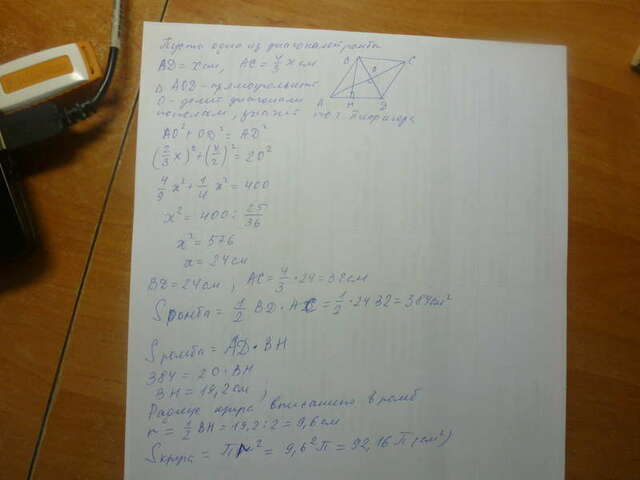 Пусть одна из диагоналей ромба
BD = x см, AC = 4/3 x см
Δ AOD - прямоугольный
O - делит диагонали
пополам, значит по т. Пифагора
B C O A H D
AO² + OD² = AD²
(2/3 x)² + (x/2)² = 20²
4/9 x² + 1/4 x² = 400
x² = 400 : 25/36
x² = 576
x = 24 см
BD = 24 см, AC = 4/3 · 24 = 32 см
S ромба = 1/2 BD · AC = 1/2 · 24 32 = 384 см²
S ромба = AD · BH
384 = 20 · BH
BH = 19,2 см,
Радиус круга, вписанного в ромб
r = 1/2 BH = 19,2 : 2 = 9,6 см
S круга = πr² = 9,6² π = 92,16 π (см²)